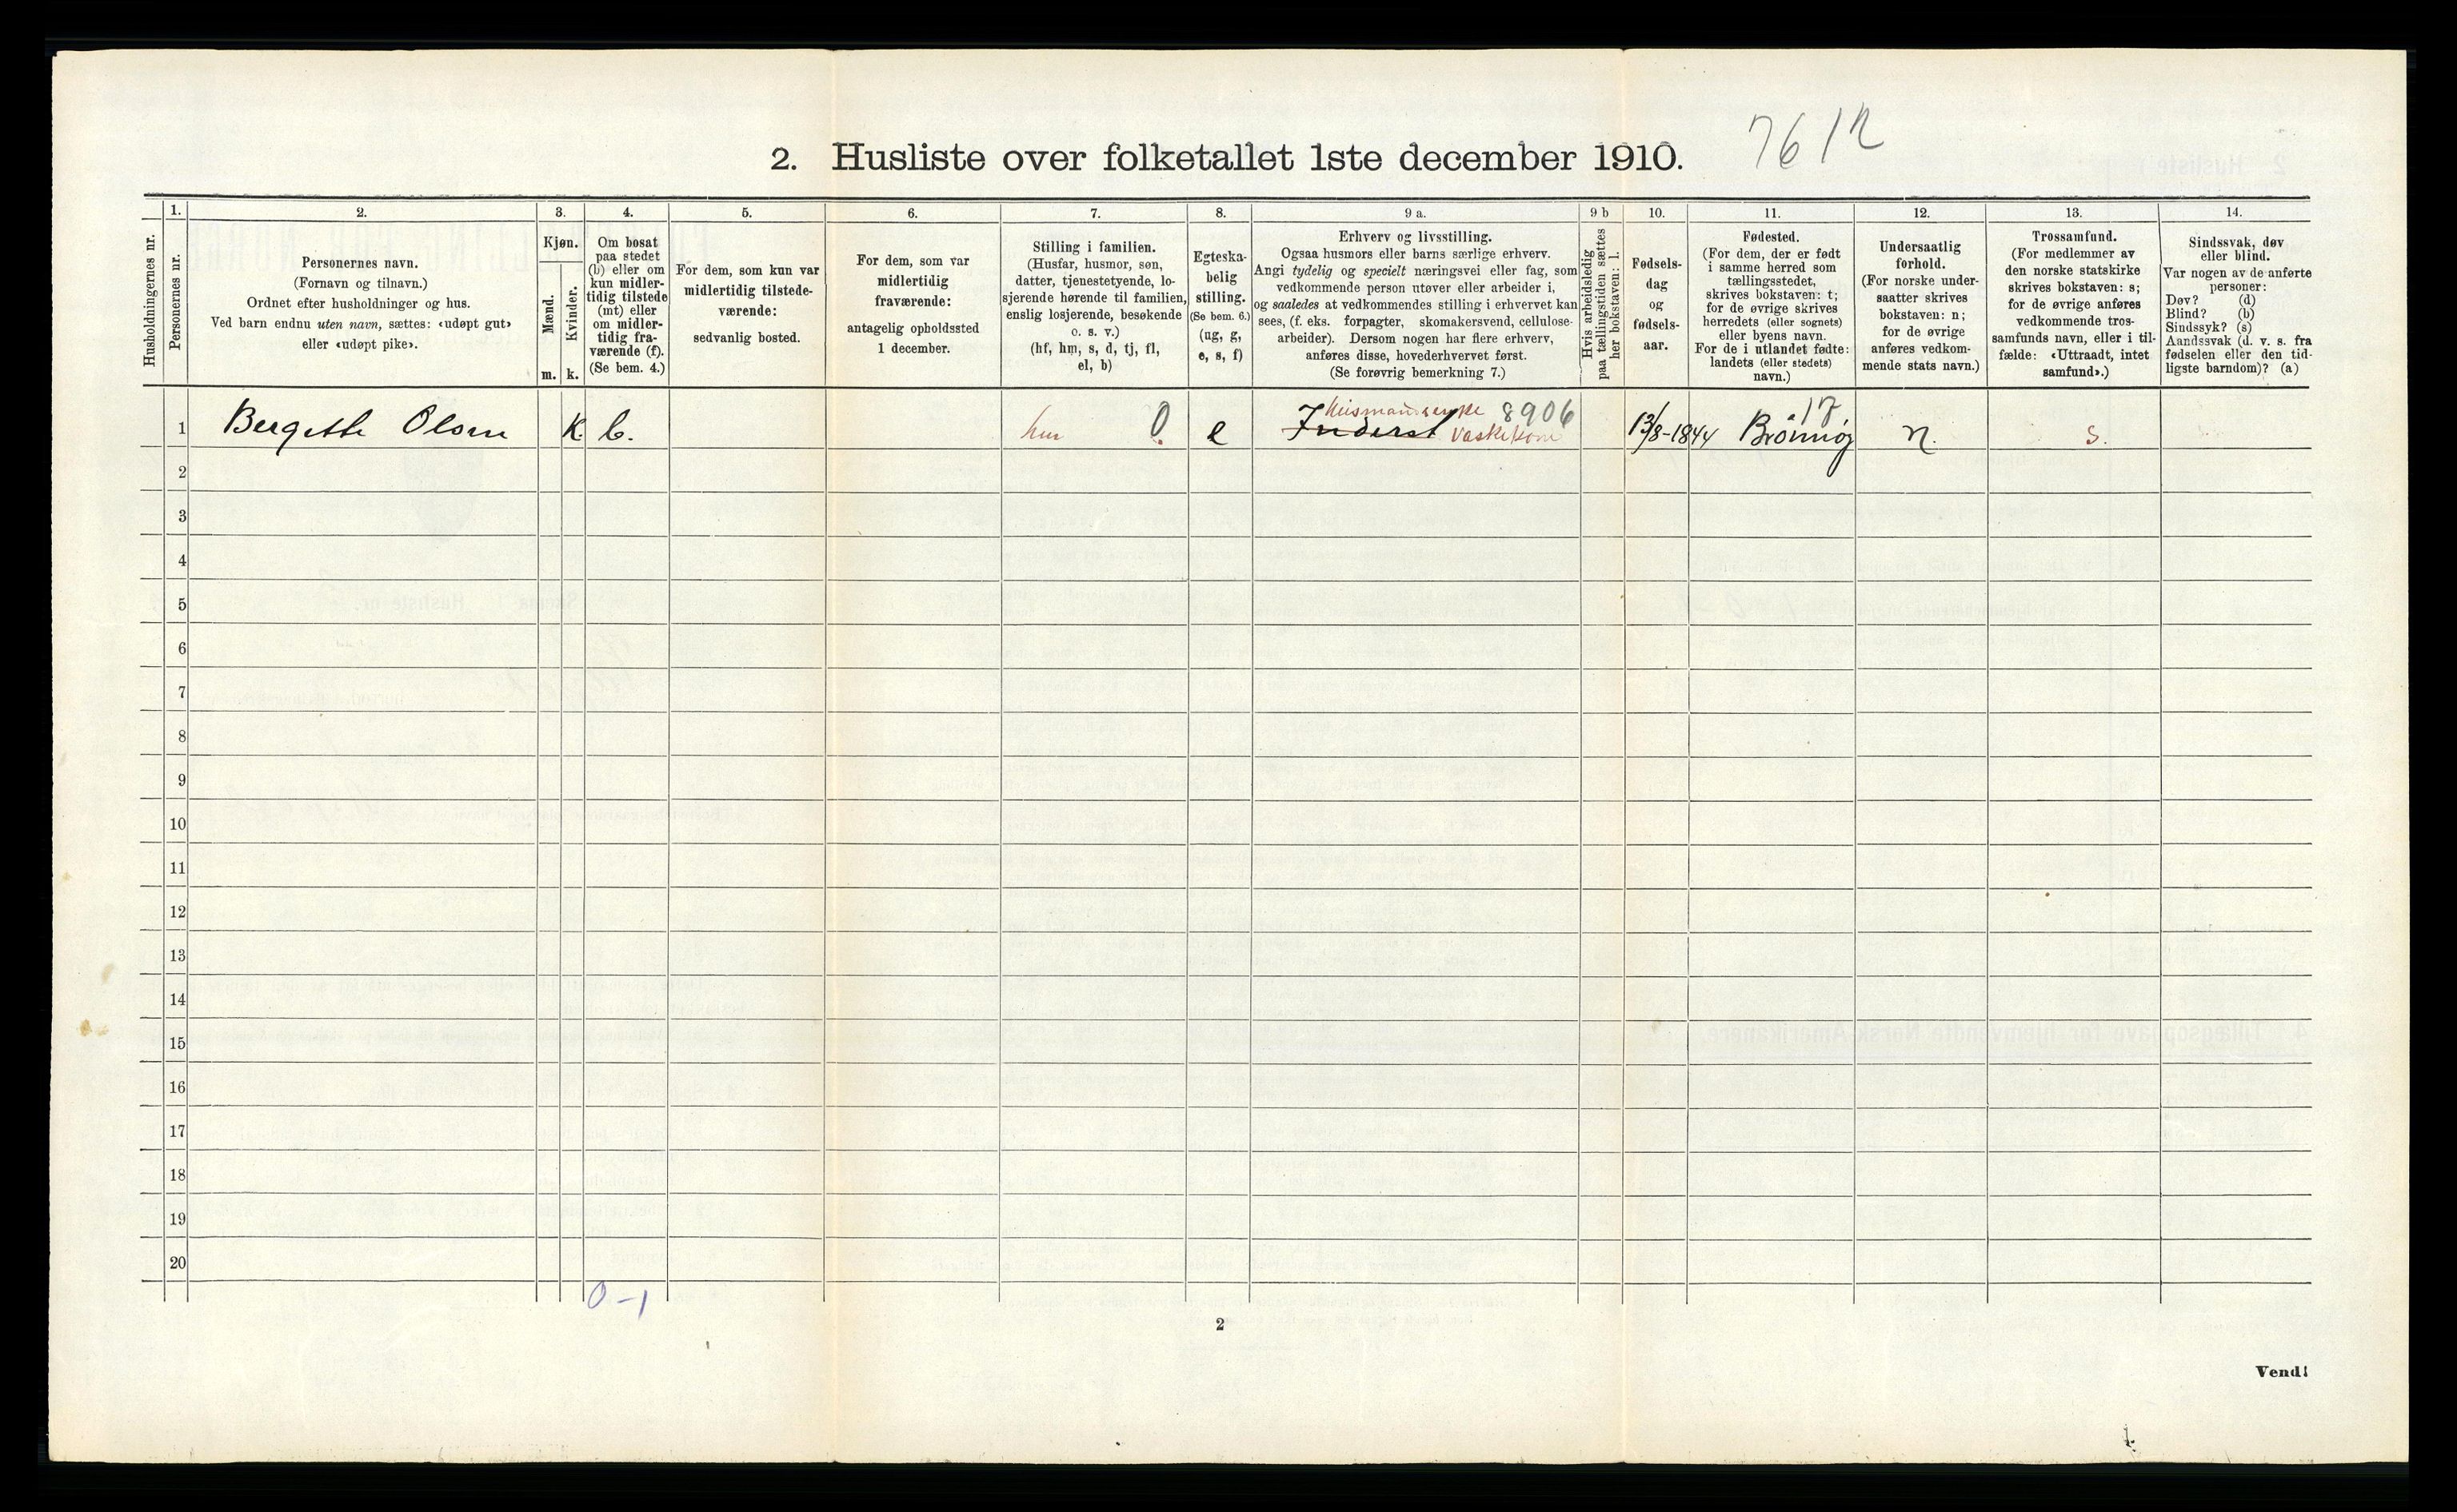 7612
2. Husliste over folketallet 1ste december 1910.
Husholdningernes nr.
1.
Personernes nr.
2.
Personernes navn.
(Fornavn og tilnavn.)
Ordnet efter husholdninger og hus.
Ved barn endnu uten navn, sættes: «udøpt gut»
eller «udøpt pike».
3.
Kjøn.
Mænd.
Kvinder.
m. k.
4.
Om bosat
paa stedet
(b) eller om
kun midler-
tidig tilstede
(mt) eller
om midler-
tidig fra-
værende (f).
(Se bem. 4.)
5.
For dem, som kun var
midlertidig tilstede-
værende:
sedvanlig bosted.
6.
For dem, som var
midlertidig
fraværende:
antagelig opholdssted
1 december.
7.
Stilling i familien.
(Husfar, husmor, søn,
datter, tjenestetyende, lo-
sjerende hørende til familien,
enslig losjerende, besøkende
o. s. v.)
(hf, hm, s, d, tj, fl,
el, b)
8.
Egteska-
belig
stilling.
(Se bem. 6.)
(ug, g,
e, s, f)
9 a.
Erhverv og livsstilling.
Ogsaa husmors eller barns særlige erhverv.
Angi tydelig og specielt næringsvei eller fag, som
vedkommende person utøver eller arbeider i,
og saaledes at vedkommendes stilling i erhvervet kan
sees, (f. eks. forpagter, skomakersvend, cellulose-
arbeider). Dersom nogen har flere erhverv,
anføres disse, hovederhvervet først.
(Se forøvrig bemerkning 7.)
9 b
Hvis arbeidsledig
paa tællingstiden sættes
her bokstaven: l.
10.
Fødsels-
dag
og
fødsels-
aar.
11.
Fødested.
(For dem, der er født
i samme herred som
tællingsstedet,
skrives bokstaven: t;
for de øvrige skrives
herredets (eller sognets)
eller byens navn.
For de i utlandet fødte:
landets (eller stedets)
navn.)
12.
Undersaatlig
forhold.
(For norske under-
saatter skrives
bokstaven: n;
for de øvrige
anføres vedkom-
mende stats navn.)
13.
Trossamfund.
(For medlemmer av
den norske statskirke
skrives bokstaven: s;
for de øvrige anføres
vedkommende tros-
samfunds navn, eller i til-
fælde: «Uttraadt, intet
samfund».)
14.
Sindssvak, døv
eller blind.
Var nogen av de anførte
personer:
Døv? (d)
Blind? (b)
Sindssyk? (s)
Aandssvak (d. v. s. fra
fødselen eller den tid-
ligste barndom)? (a)
husmandsenke 8906 17
1 Bergette Olsen K b. hm 0 e Inderst vaskekone 13/8-1844 Brønnøy n. s.
2
3
4
5
6
7
8
9
10
11
12
13
14
15
16
17
18
19
20
0-1
2
Vend!